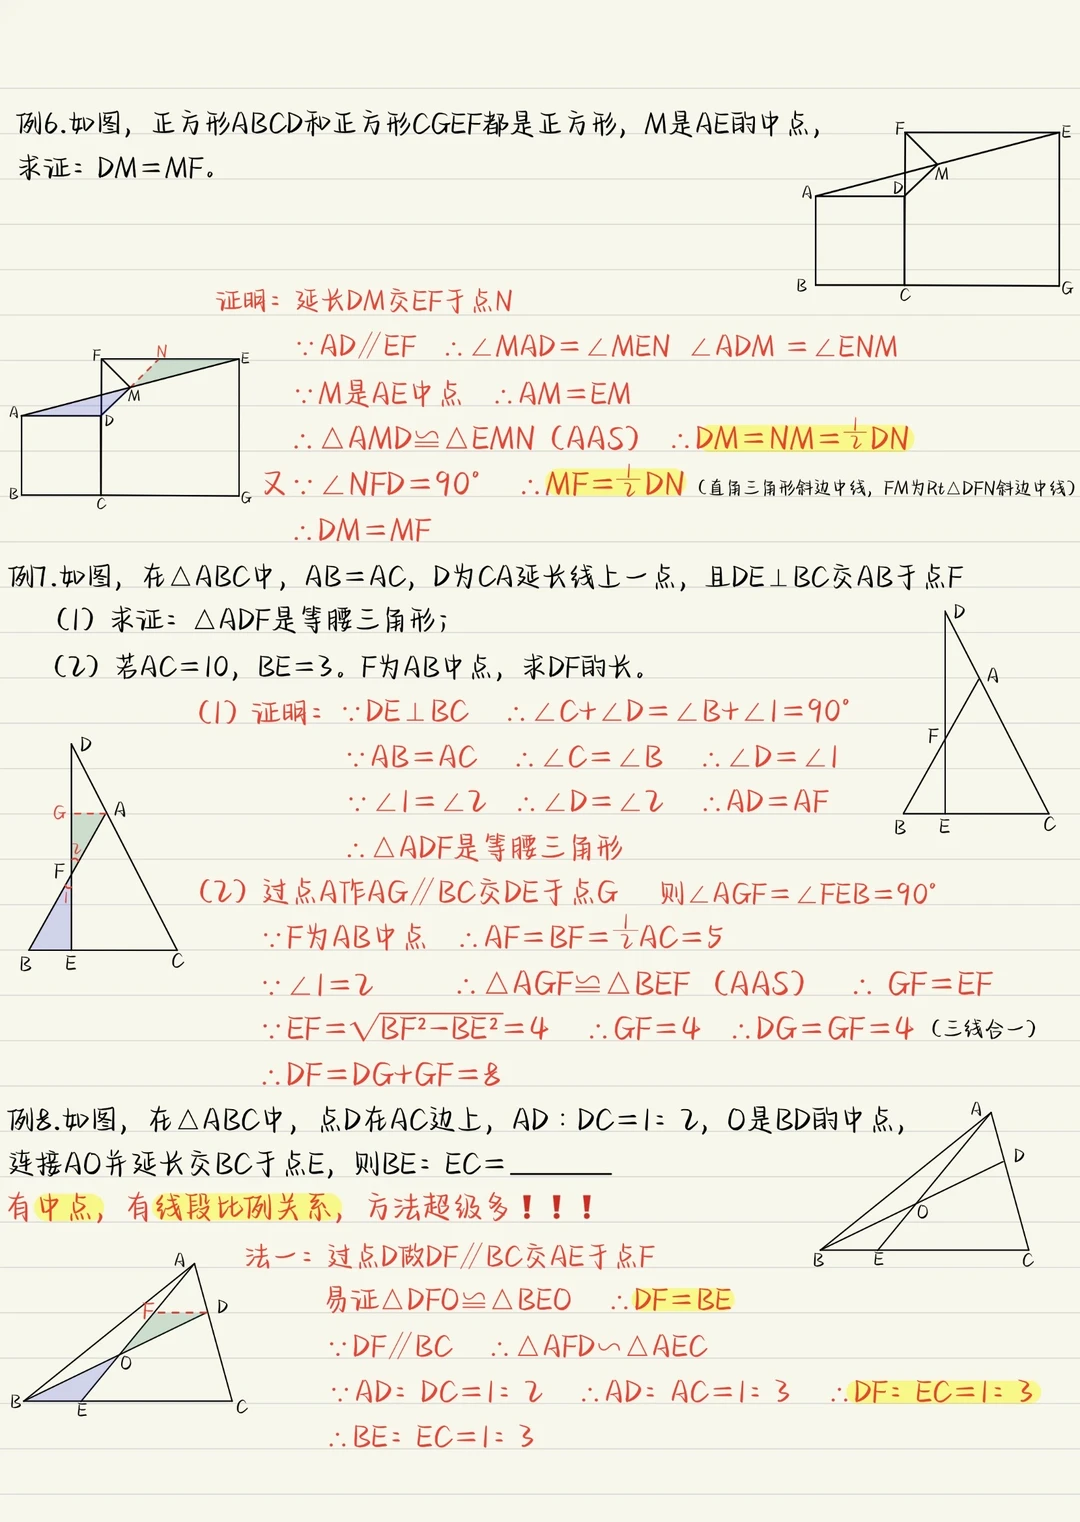 例6.如图，正方形ABCD和正方形CGEF都是正方形，M是AE的中点，
求证：DM=MF。
F
E
M
A
D
B
C
G
证明：延长DM交EF于点N
∵AD∥EF ∴∠MAD=∠MEN ∠ADM=∠ENM
∵M是AE中点 ∴AM=EM
∴△AMD≌△EMN（AAS） ∴DM=NM=½DN
又∵∠NFD=90° ∴MF=½DN（直角三角形斜边中线，FM为Rt△DFN斜边中线）
∴DM=MF
F
N
E
M
A
D
B
C
G
例7.如图，在△ABC中，AB=AC，D为CA延长线上一点，且DE⊥BC交AB于点F
（1）求证：△ADF是等腰三角形；
（2）若AC=10，BE=3。F为AB中点，求DF的长。
D
A
F
B
E
C
（1）证明：∵DE⊥BC ∴∠C+∠D=∠B+∠1=90°
∵AB=AC ∴∠C=∠B ∴∠D=∠1
∵∠1=∠2 ∴∠D=∠2 ∴AD=AF
∴△ADF是等腰三角形
（2）过点A作AG∥BC交DE于点G 则∠AGF=∠FEB=90°
∵F为AB中点 ∴AF=BF=½AC=5
∵∠1=2 ∴△AGF≌△BEF（AAS） ∴GF=EF
∵EF=√BF²-BE²=4 ∴GF=4 ∴DG=GF=4（三线合一）
∴DF=DG+GF=8
D
G
A
2
F
1
B
E
C
例8.如图，在△ABC中，点D在AC边上，AD：DC=1：2，O是BD的中点，
连接AO并延长交BC于点E，则BE：EC=______
有中点，有线段比例关系，方法超级多！！！
A
D
O
B
E
C
法一：过点D做DF∥BC交AE于点F
易证△DFO≌△BEO ∴DF=BE
∵DF∥BC ∴△AFD∽△AEC
∵AD：DC=1：2 ∴AD：AC=1：3 ∴DF：EC=1：3
∴BE：EC=1：3
A
F
D
O
B
E
C